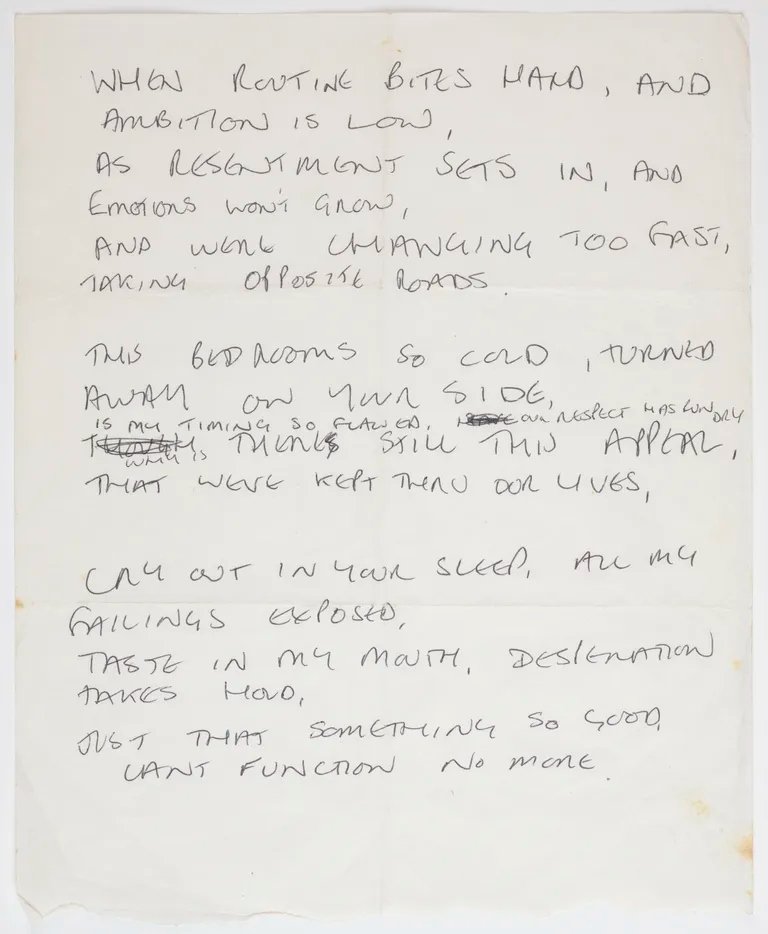 WHEN ROUTINE BITES HARD, AND
AMBITION IS LOW,
AS RESENTMENT SETS IN, AND
EMOTIONS WON'T GROW,
AND WERE CHANGING TOO FAST,
TAKING OPPOSITE ROADS.
THIS BEDROOMS SO COLD, TURNED
AWAY ON YOUR SIDE,
IS MY TIMING SO FLAWED. OUR RESPECT HAS RUN DRY
THERES STILL THIS APPEAL,
WHY IS
THAT WEVE KEPT THRU OUR LIVES,
CRY OUT IN YOUR SLEEP, ALL MY
FAILINGS EXPOSED,
TASTE IN MY MOUTH, DESPERATION
TAKES HOLD,
JUST THAT SOMETHING SO GOOD,
CANT FUNCTION NO MORE.